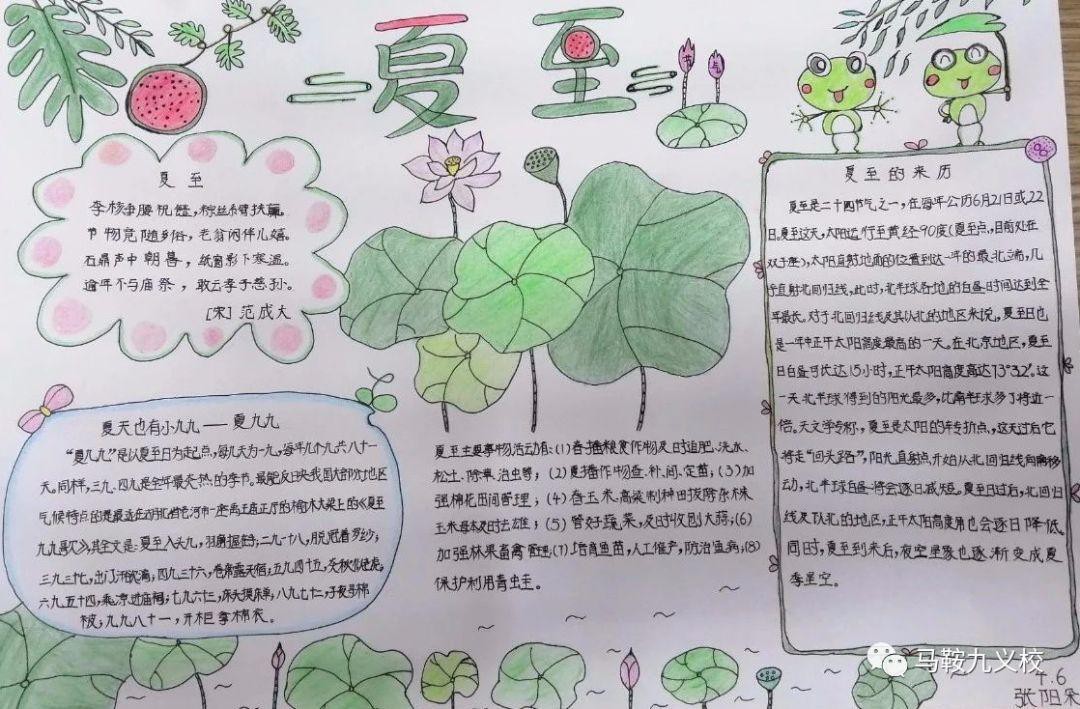 夏至
节气
夏至
李核垂腰祝饐,粽丝系臂扶羸。
节物竞随乡俗,老翁闲伴儿嬉。
石鼎声中朝暮,纸窗影下寒温。
逾年不与庙祭,敢云孝子慈孙。
[宋]范成大
夏至的来历
夏至是二十四节气之一,在每年公历6月21日或22
日。夏至这天,太阳运行至黄经90度(夏至点,目前处在
双子座),太阳直射地面的位置到达一年的最北端,几
乎直射北回归线,此时,北半球各地的白昼时间达到全
年最长。对于北回归线及其以北的地区来说,夏至日也
是一年中正午太阳高度最高的一天。在北京地区,夏至
日白昼可长达15小时,正午太阳高度高达73°32′。这
一天北半球得到的阳光最多,比南半球多了将近一
倍。天文学专称,夏至是太阳的转折点,这天过后它
将走“回头路”,阳光直射点开始从北回归线向南移
动,北半球白昼将会逐日减短。夏至日过后,北回归
线及以北的地区,正午太阳高度角也会逐日降低。
同时,夏至到来后,夜空星象也逐渐变成夏
季星空。
夏天也有小九九——夏九九
“夏九九”是以夏至日为起点,每九天为一九,每年九个九共八十一
天。同样,三九、四九是全年最炎热的季节。
夏至入头九,羽扇握在手;二九一十八,脱冠着罗纱;
三九二十七,出门汗欲滴;四九三十六,卷席露天宿;五九四十五,炎秋似老虎;
六九五十四,乘凉进庙祠;七九六十三,床头摸床单;八九七十二,子夜寻棉
被;九九八十一,开柜拿棉衣。
夏至主要事物活动有:(1)春播粮食作物及时追肥、浇水、
松土、除草、治虫等;(2)夏播作物查、补、间、定苗;(3)加
强棉花田间管理;(4)春玉米、高粱制种田拔除杂株
玉米母本及时去雄;(5)管好蔬菜,及时收刨大蒜;(6)
加强林果畜禽管理;(7)培育鱼苗,人工催产,防治鱼病;(8)
保护利用青蛙。
马鞍九义校
4.6